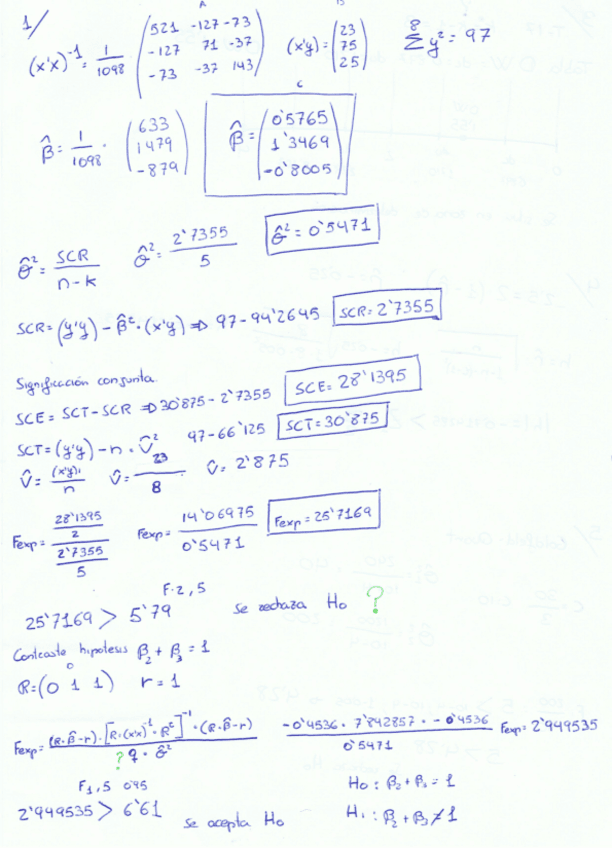 1/
A B
(x'x)⁻¹ = 1/1098 · (521 -127 -73 / -127 71 -37 / -73 -37 143) (x'y) = (23 / 75 / 25) ∑⁸ y² = 97
C
β̂ = 1/1098 · (633 / 1479 / -879) β̂ = (0'5765 / 1'3469 / -0'8005)
σ̂² = SCR/n-k σ̂² = 2'7355/5 σ̂² = 0'5471
SCR = (y'y) - β̂ᵗ · (x'y) ⇒ 97 - 94'2645 SCR = 2'7355
Significación conjunta.
SCE = SCT - SCR ⇒ 30'875 - 2'7355 SCE = 28'1395
SCT = (y'y) - n · V̂² 97 - 66'125 SCT = 30'875
V̂ = (x'y)₁/n V̂ = 23/8 V̂ = 2'875
Fexp = (28'1395/2)/(2'7355/5) Fexp = 14'06975/0'5471 Fexp = 25'7169
F. 2, 5
25'7169 > 5'79 se rechaza Ho ?
Contraste hipotesis β₂ + β₃ = 1
R = (0 1 1) r = 1
Fexp = (R·β̂-r) · [R·(x'x)⁻¹·Rᵗ]⁻¹ · (R·β̂-r) / ? q · σ̂² -0'4536 · 7'842857 · -0'4536 / 0'5471 Fexp = 2'949535
F1, 5 0'95 Ho: β₂ + β₃ = 1
2'949535 > 6'61 se acepta Ho H₁: β₂ + β₃ ≠ 1